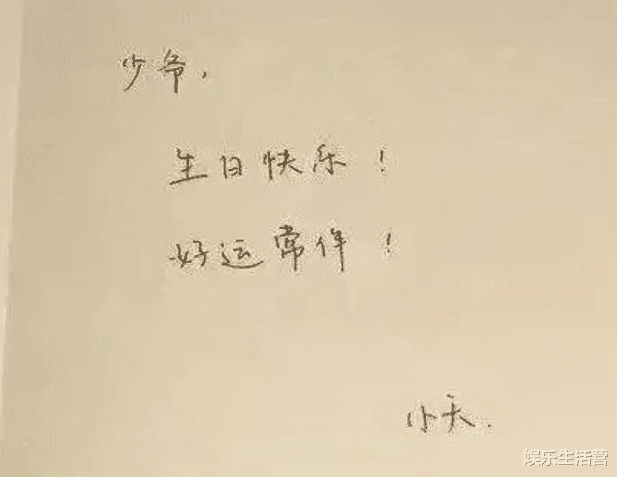 少爷,
生日快乐!
好运常伴!
小天.
娱乐生活营